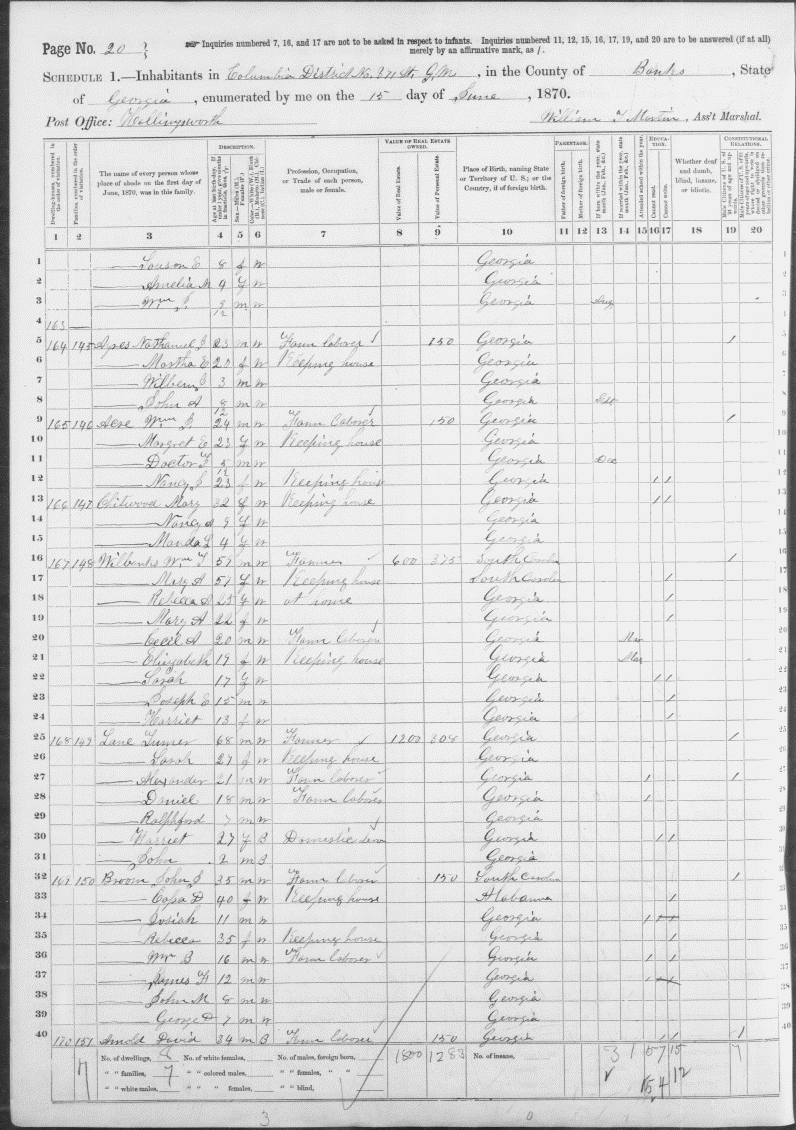 Page No. 20
Inquiries numbered 7, 16, and 17 are not to be asked in respect to infants. Inquiries numbered 11, 12, 15, 16, 17, 19, and 20 are to be answered (if at all)
merely by an affirmative mark, as /.
SCHEDULE 1.—Inhabitants in Columbia District No. 371 St. G.M., in the County of Banks, State
of Georgia, enumerated by me on the 15 day of June, 1870.
Post Office: Hollingsworth
William T Martin, Ass't Marshal.
DESCRIPTION. VALUE OF REAL ESTATE OWNED. PARENTAGE. EDUCATION. CONSTITUTIONAL RELATIONS.
Dwelling-houses, numbered in the order of visitation. Families, numbered in the order of visitation. The name of every person whose place of abode on the first day of June, 1870, was in this family. Profession, Occupation, or Trade of each person, male or female. Value of Real Estate. Value of Personal Estate. Place of Birth, naming State or Territory of U. S.; or the Country, if of foreign birth. Father of foreign birth. Mother of foreign birth. Attended school within the year. Cannot read. Cannot write. Whether deaf and dumb, blind, insane, or idiotic.
1 2 3 4 5 6 7 8 9 10 11 12 13 14 15 16 17 18 19 20
1 E 8 f W Georgia
2 Amelia M 4 f W Georgia
3 Wm J. 9/12 m W Georgia Aug
4 163
5 164 145 Ayres Nathaniel J 23 m W Farm laborer 150 Georgia /
6 Martha E 20 f W Keeping house Georgia
7 3 m W Georgia
8 John A 8/12 m W Georgia
9 165 146 Acre Wm J 24 m W Farm laborer 150 Georgia /
10 Margret E 23 f W Keeping house Georgia
11 Doctor F 5/12 m W Georgia Dec
12 Nancy J 23 f W Keeping house Georgia / /
13 166 147 Chitwood Mary 32 f W Keeping house Georgia / /
14 Nancy A 9 f W Georgia
15 Manda L 4 f W Georgia
16 167 148 Wilbanks Wm T 57 m W Farmer 600 375 South Carolina /
17 Mary A 57 f W Keeping house South Carolina /
18 Rebecca 25 f W at home Georgia /
19 Mary A 22 f W Georgia /
20 Cecil A 20 m W Farm laborer Georgia Mar
21 Elizabeth 19 f W Keeping house Georgia Mar
22 Sarah 17 f W Georgia / /
23 Joseph E 15 m W Georgia /
24 Harriet 13 f W Georgia /
25 168 149 Lane Turner 68 m W Farmer 1200 308 Georgia /
26 Sarah 27 f W Keeping house Georgia
27 Alexander 21 m W Farm laborer Georgia / /
28 Daniel 18 m W Farm laborer Georgia /
29 Ralphford 7 m W Georgia
30 Harriet 27 f B Domestic Georgia / /
31 John 2 m B Georgia
32 169 150 Broom John J 35 m W Farm labour 150 South Carolina /
33 D 40 f W Keeping house Alabama /
34 Josiah 11 m W Georgia /
35 Rebecca 35 f W Keeping house Georgia /
36 Wm B 16 m W Farm laborer Georgia / /
37 James F 12 m W Georgia /
38 John M 8 m W Georgia
39 George D 7 m W Georgia
40 170 151 Arnold David 34 m B Farm laborer 150 Georgia / / /
No. of dwellings, 8 No. of white females, No. of males, foreign born, 1800 1283 No. of insane, 3 1 5 7 15 7
" " families, 7 " " colored males, " " females, " "
" " white males, " " " females, " " blind, 15 4 12